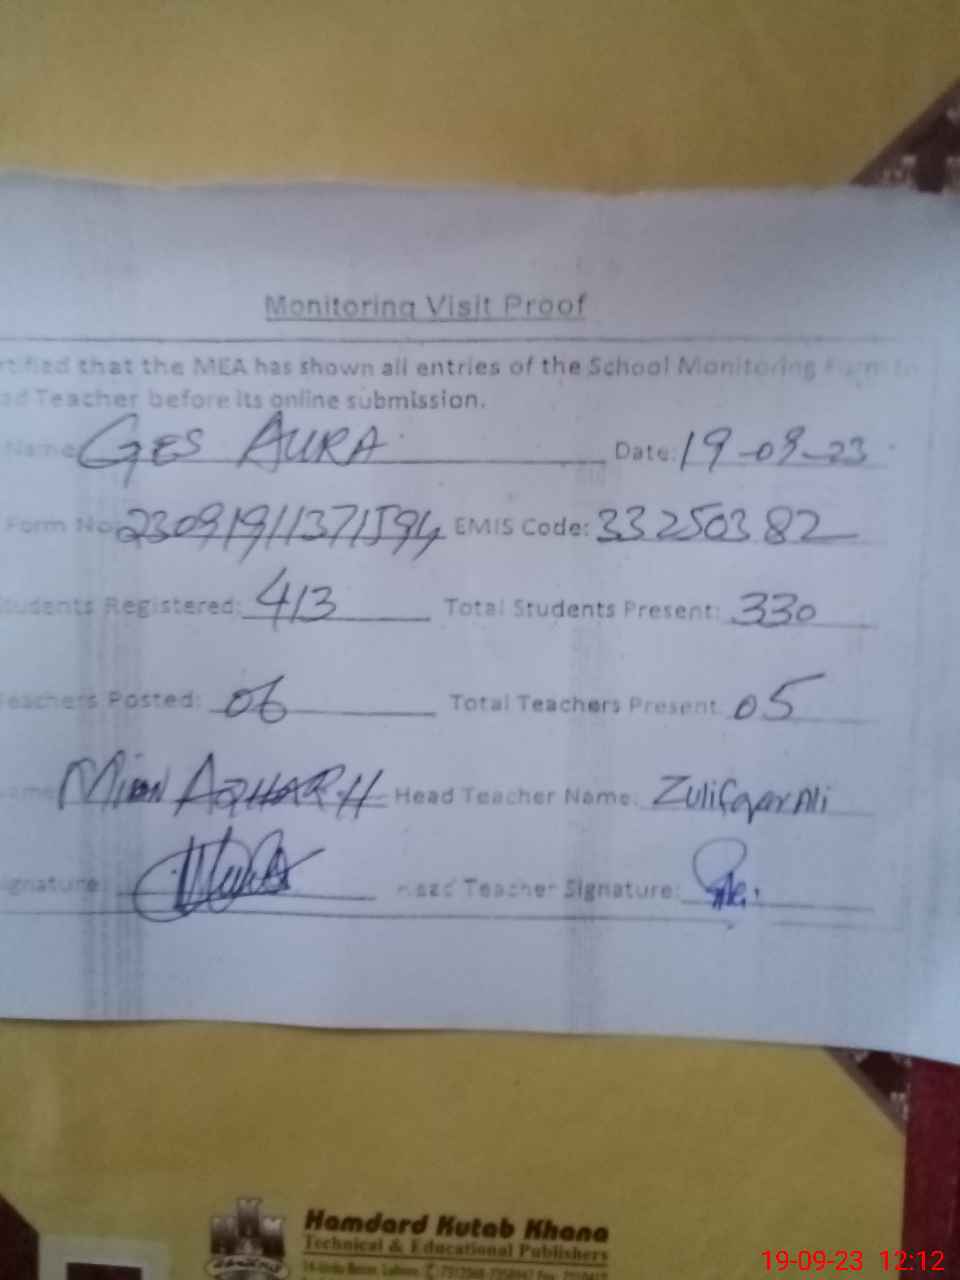 Monitoring Visit Proof
rtified that the MEA has shown all entries of the School Monitoring Form to
ad Teacher before its online submission.
Name GES AURA Date: 19-09-23
Form No: 23091911371594 EMIS Code: 33250382
tudents Registered: 413 Total Students Present: 330
Teachers Posted: 06 Total Teachers Present: 05
ame Mian AZHAR H Head Teacher Name: Zulifqar Ali
ignature: Head Teacher Signature:
Hamdard Kutab Khana
Technical & Educational Publishers
19-09-23 12:12